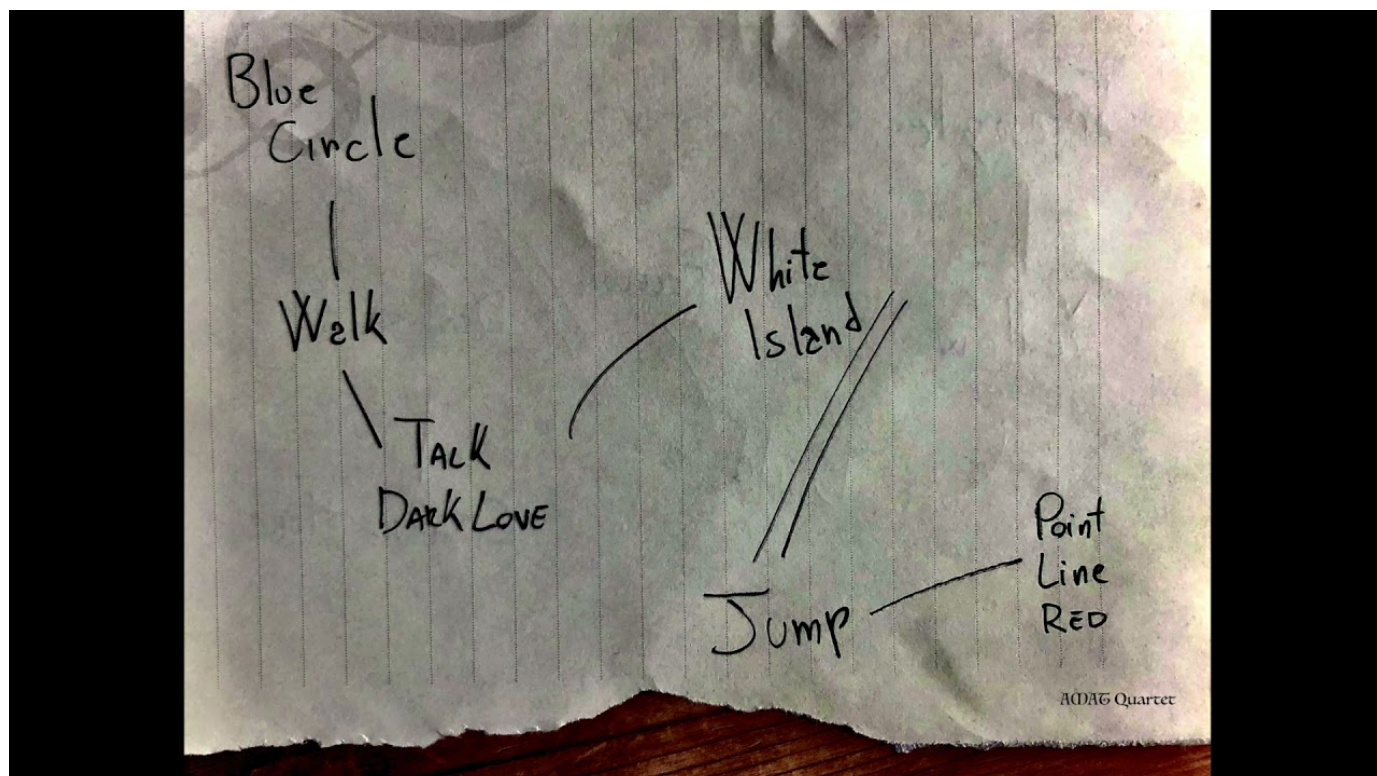 Blue
Circle
Walk
TALK
DARK LOVE
White
Island
Jump
Point
Line
RED
AMAT Quartet